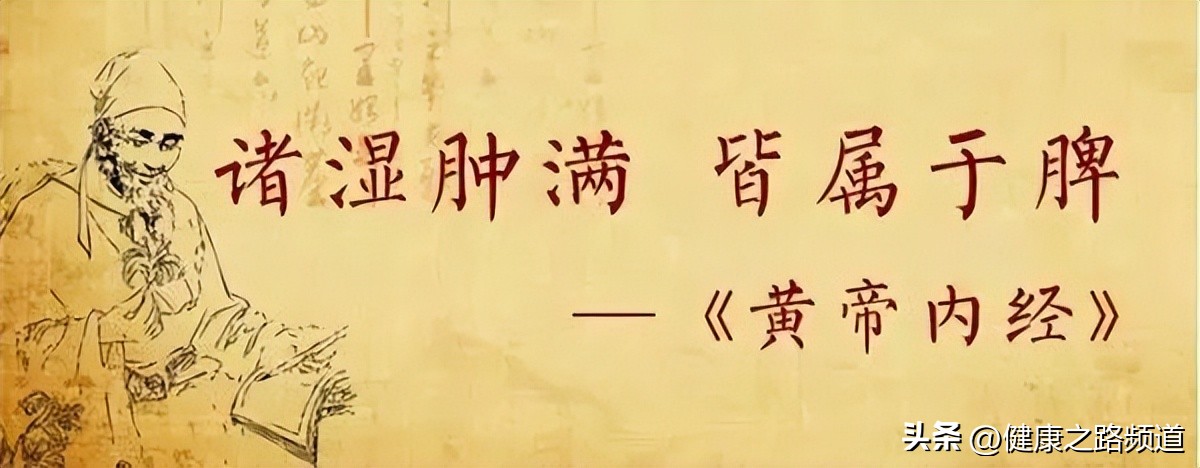 诸湿肿满 皆属于脾
—《黄帝内经》
头条 @健康之路频道